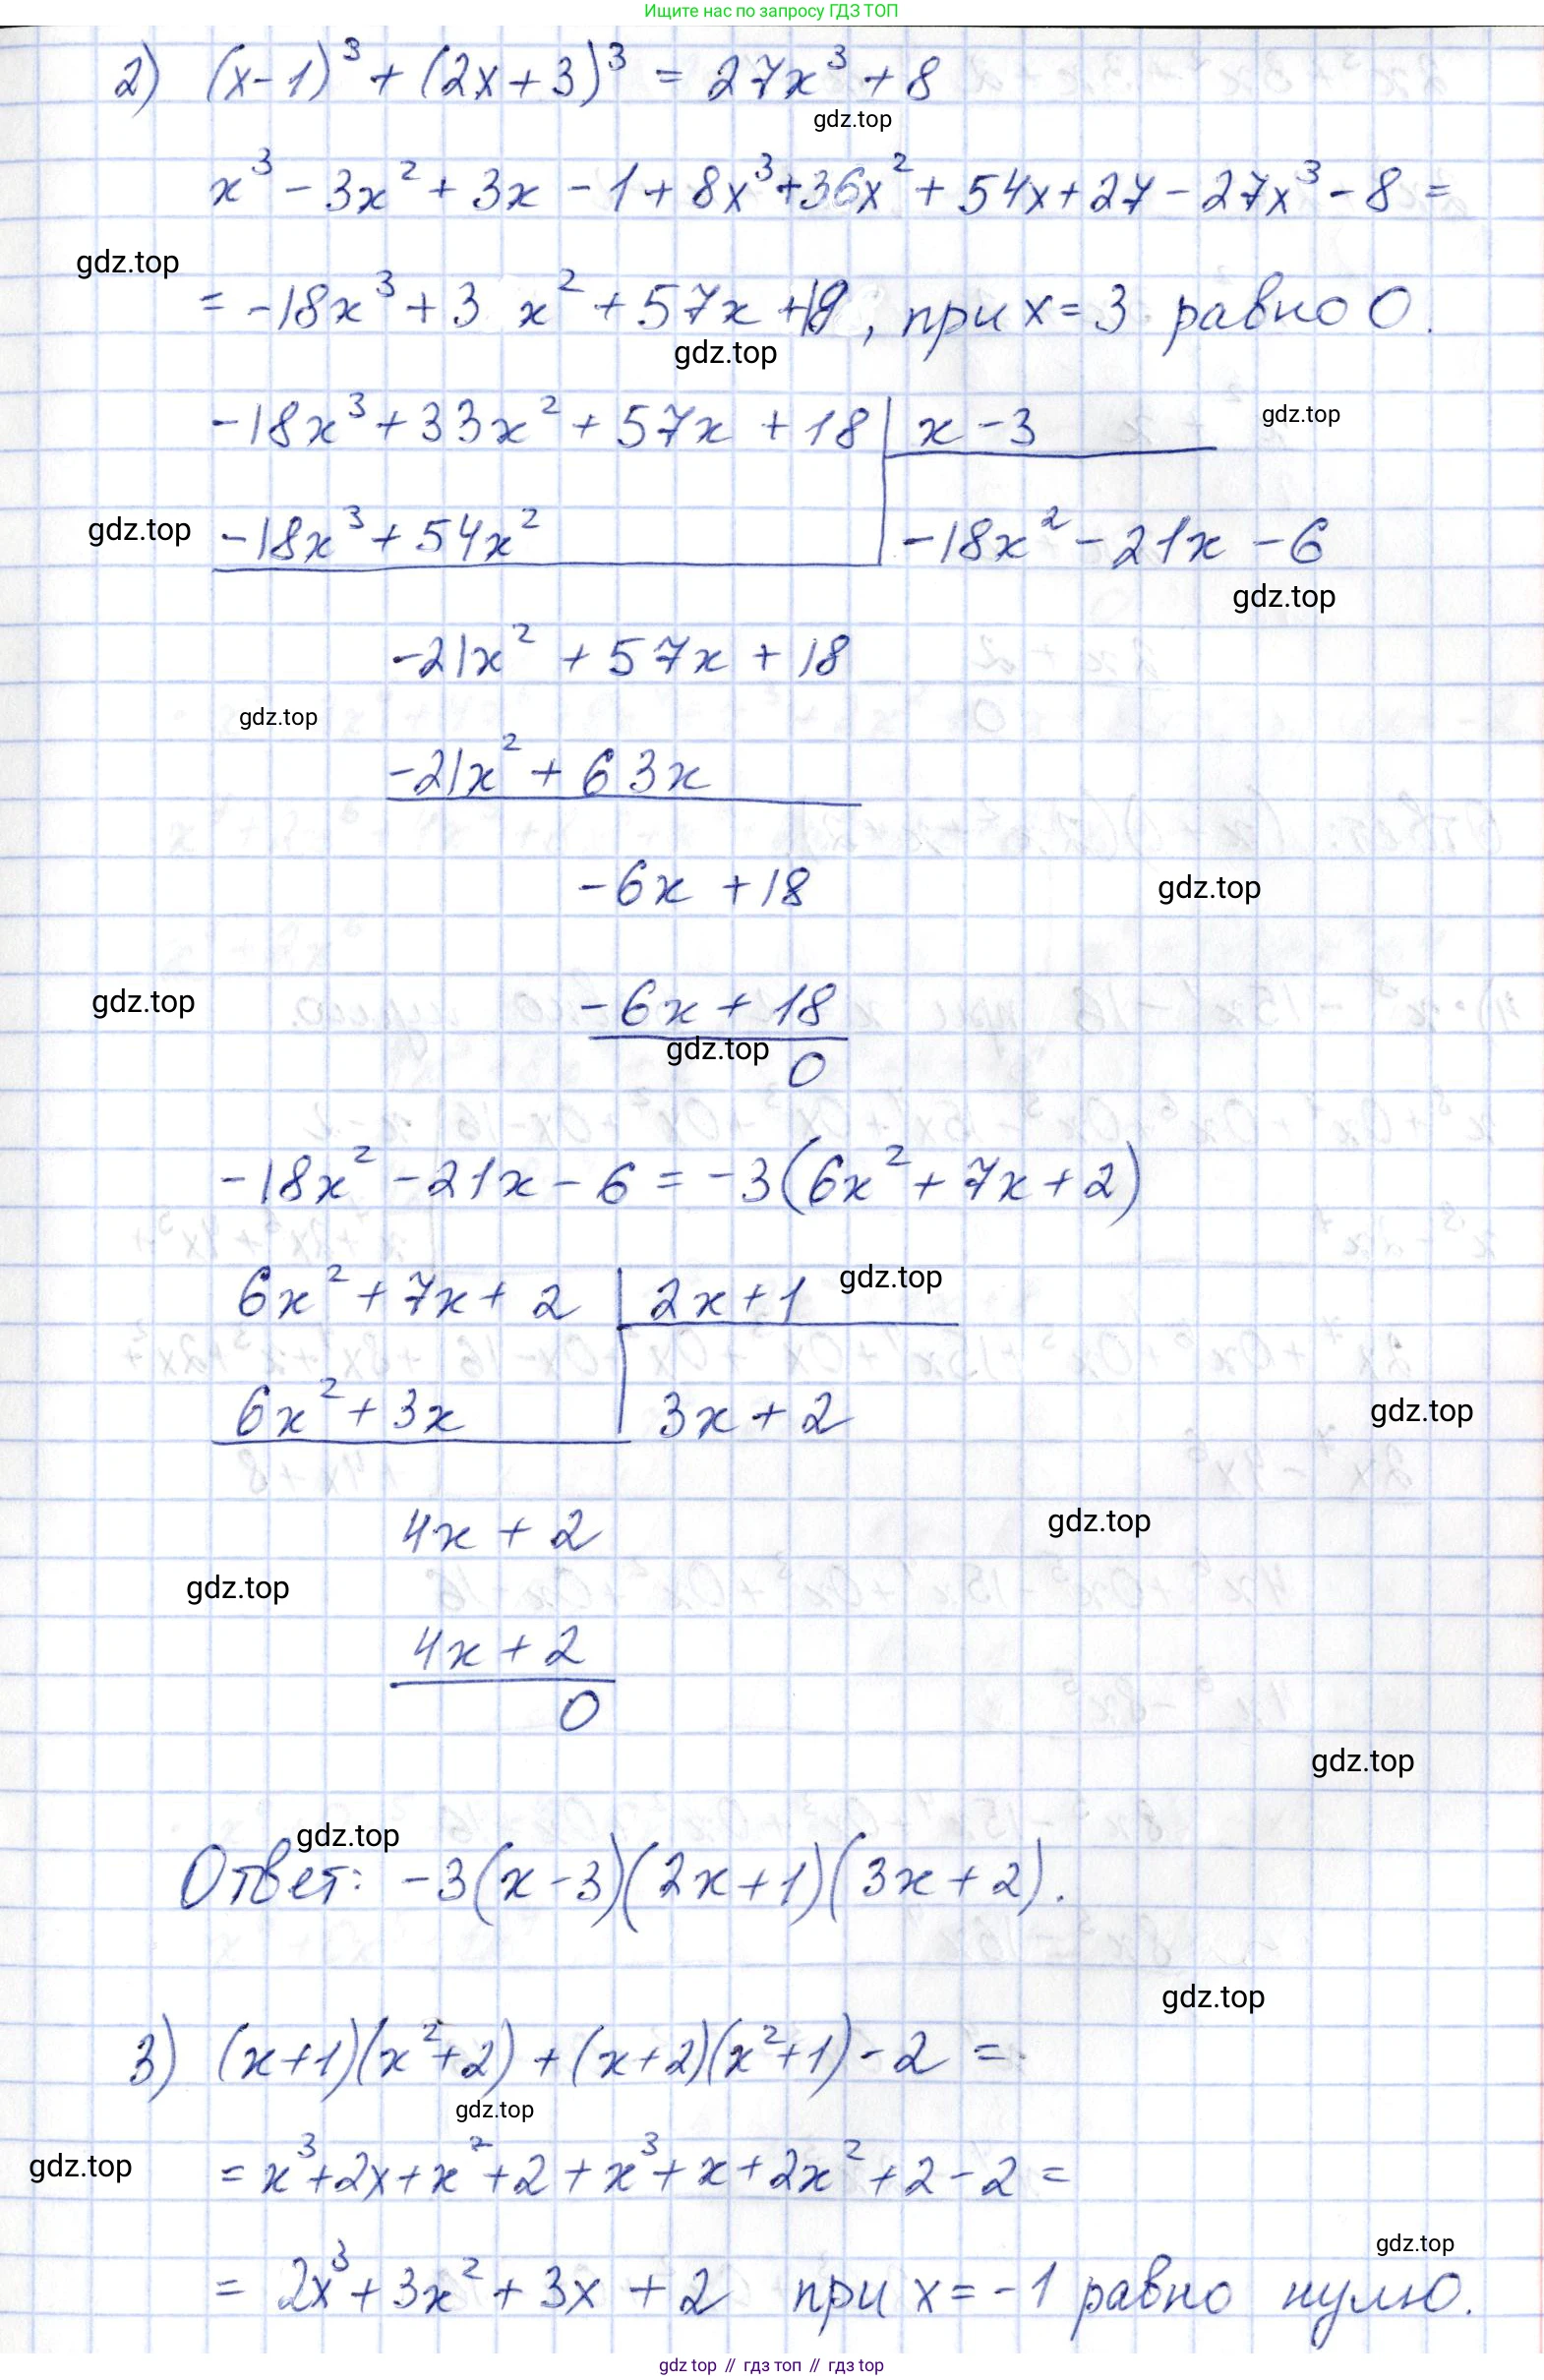 Ищите нас по запросу ГДЗ ТОП
2) (x-1)³ + (2x+3)³ = 27x³ + 8
gdz.top
x³ - 3x² + 3x - 1 + 8x³ + 36x² + 54x + 27 - 27x³ - 8 =
gdz.top
= -18x³ + 3 x² + 57x + 18, при x = 3 равно 0.
gdz.top
-18x³ + 33x² + 57x + 18 | x - 3
gdz.top
gdz.top
-18x³ + 54x² | -18x² - 21x - 6
gdz.top
-21x² + 57x + 18
gdz.top
-21x² + 63x
-6x + 18
gdz.top
gdz.top
-6x + 18
gdz.top
0
-18x² - 21x - 6 = -3(6x² + 7x + 2)
6x² + 7x + 2 | 2x + 1
gdz.top
6x² + 3x | 3x + 2
gdz.top
4x + 2
gdz.top
gdz.top
4x + 2
0
gdz.top
gdz.top
Ответ: -3(x-3)(2x+1)(3x+2).
gdz.top
3) (x+1)(x²+2) + (x+2)(x²+1) - 2 =
gdz.top
gdz.top
= x³ + 2x + x² + 2 + x³ + x + 2x² + 2 - 2 =
gdz.top
= 2x³ + 3x² + 3x + 2 при x = -1 равно нулю.
gdz.top // гдз топ // gdz.top